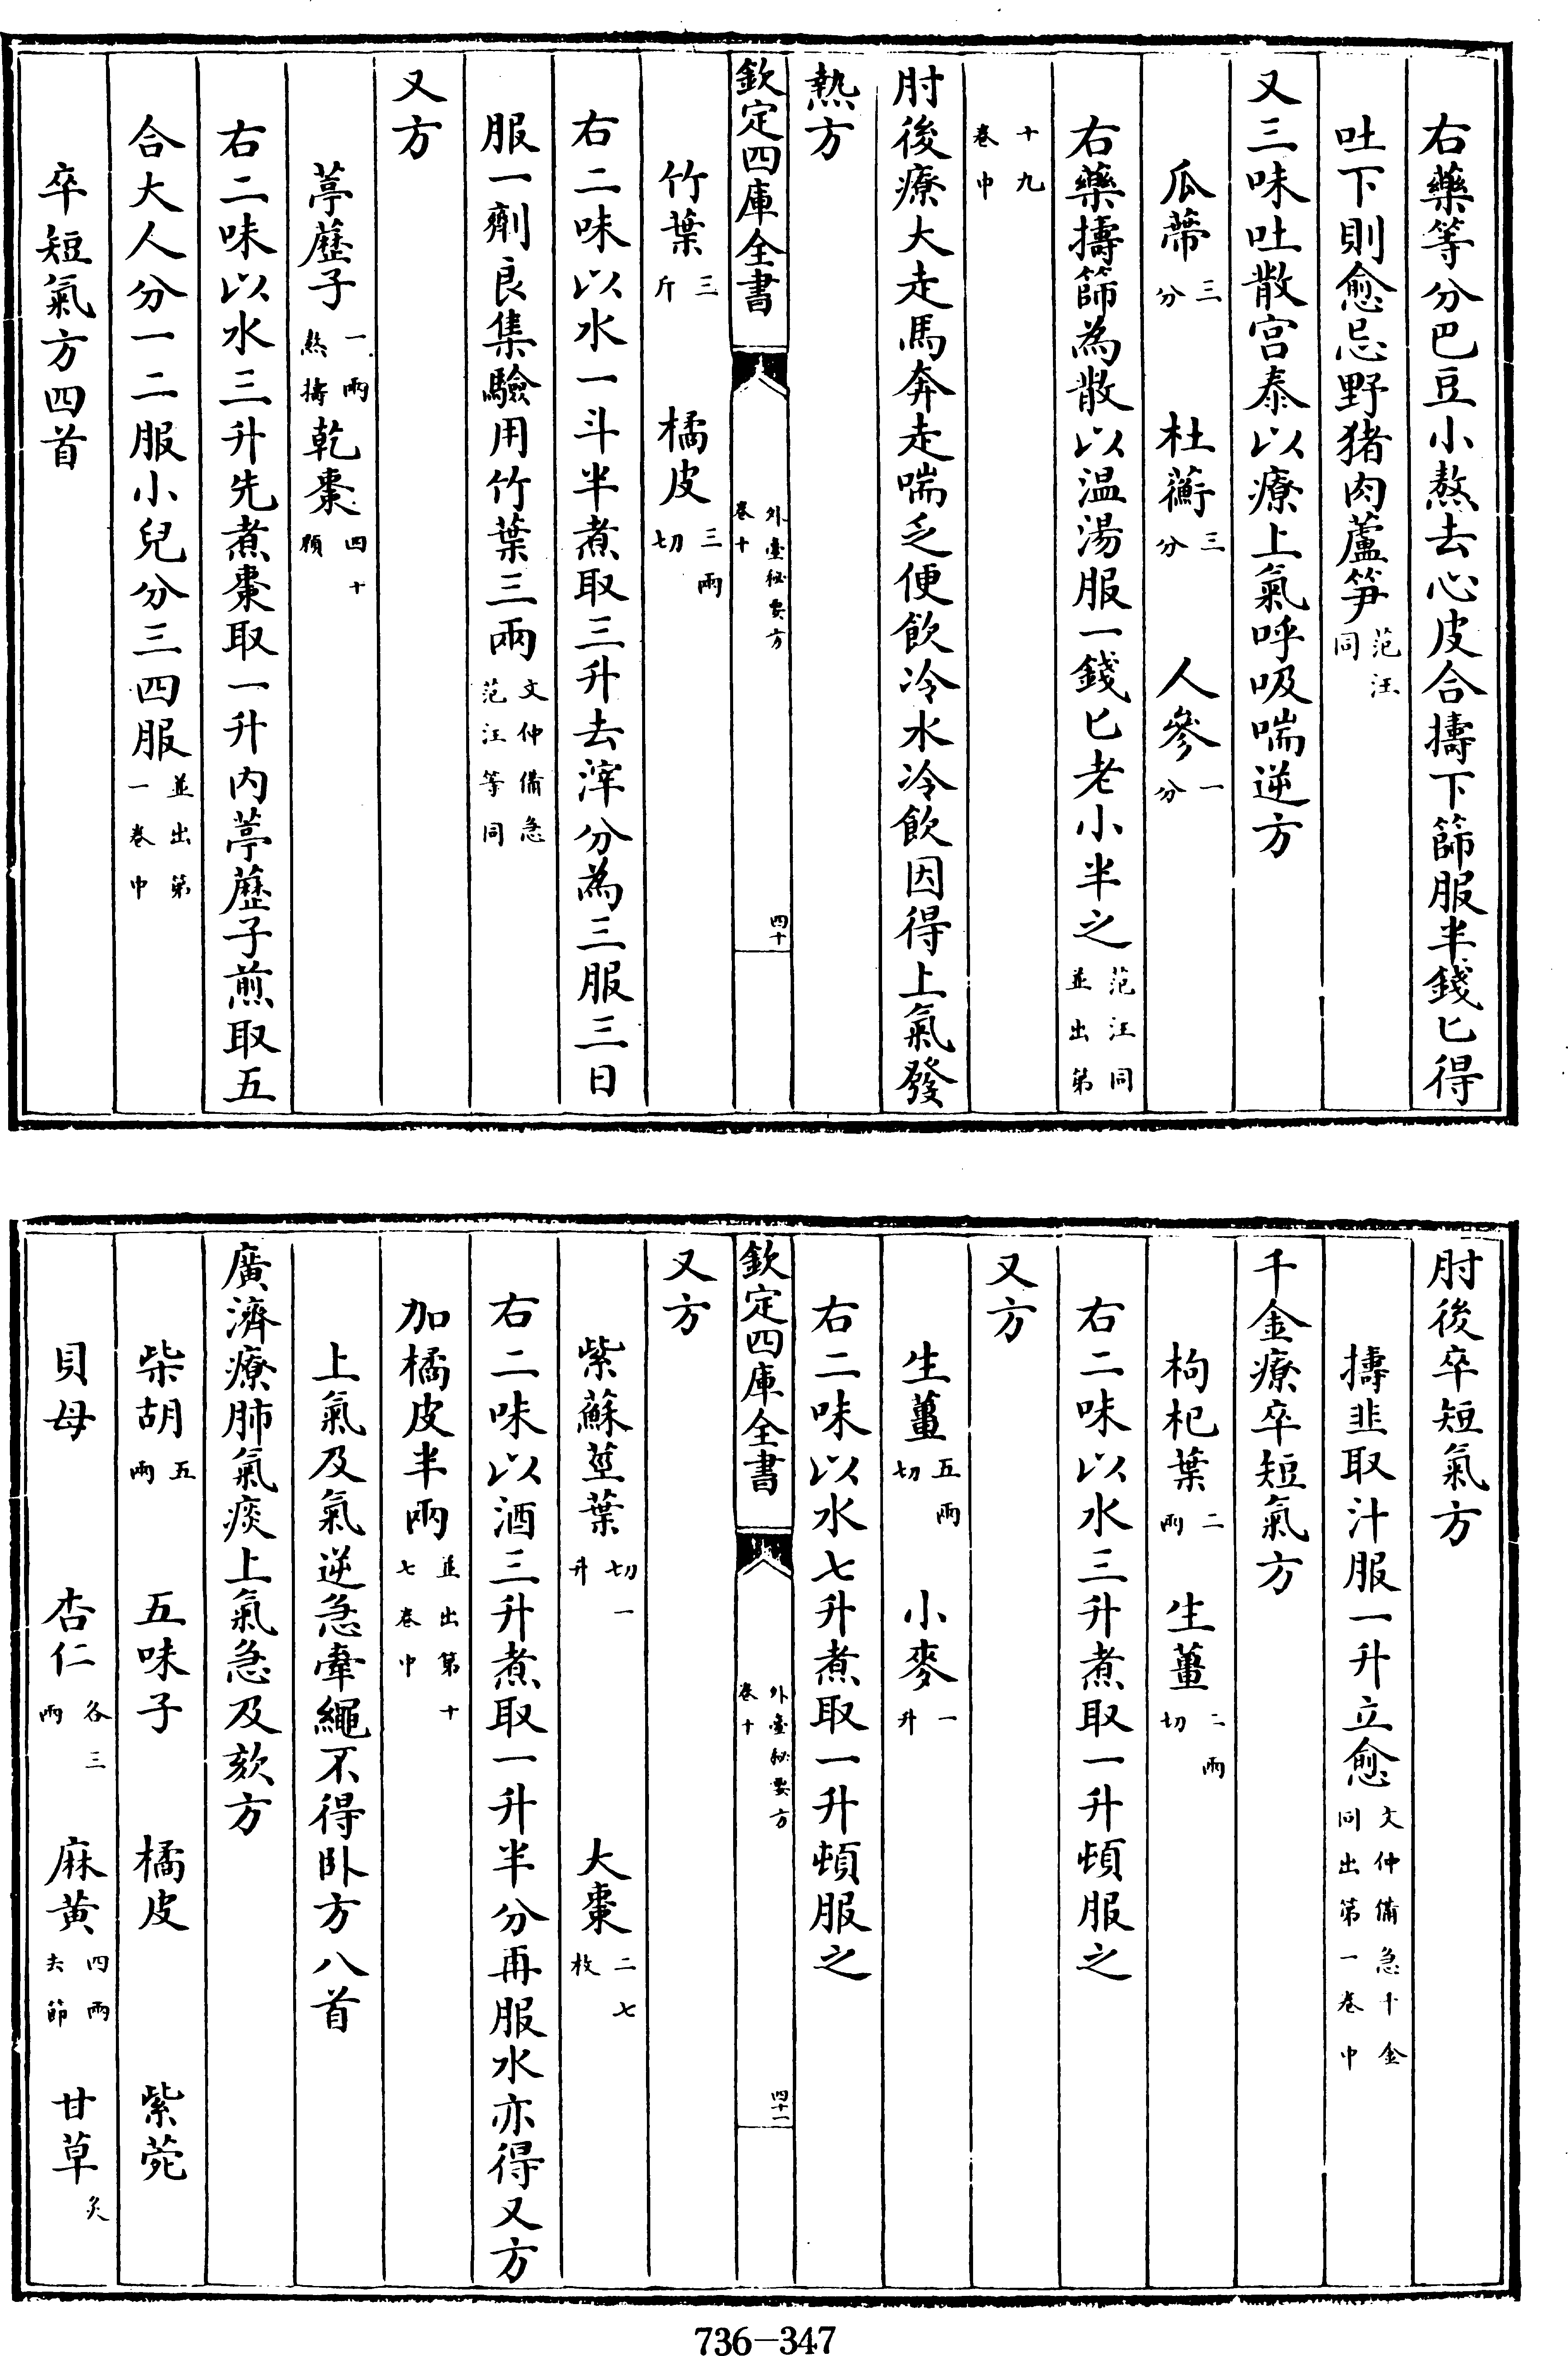 右藥等分巴豆小熬去心皮合擣下篩服半錢匕得
吐下則愈忌野猪肉蘆笋范汪同
又三味吐散宫泰以療上氣呼吸喘逆方
瓜蔕三分　杜蘅三分　人參一分
右藥擣篩為散以温湯服一錢匕老小半之范汪同並出第
十九卷中
肘後療大走馬奔走喘乏便飲冷水冷飲因得上氣發
熱方
欽定四庫全書　外臺秘要方卷十　四十
竹葉三斤　橘皮三兩切
右二味以水一斗半煮取三升去滓分為三服三日
服一劑良集驗用竹葉三兩文仲備急范汪等同
又方
葶藶子一兩熬擣　乾棗四十顆
右二味以水三升先煮棗取一升内葶藶子煎取五
合大人分一二服小兒分三四服並出第一卷中
卒短氣方四首
肘後卒短氣方
擣韭取汁服一升立愈文仲備急千金同出第一卷中
千金療卒短氣方
枸杞葉二兩　生薑二兩切
右二味以水三升煮取一升頓服之
又方
生薑五兩切　小麥一升
右二味以水七升煮取一升頓服之
欽定四庫全書　外臺秘要方卷十　四十一
又方
紫蘇莖葉切一升　大棗二七枚
右二味以酒三升煮取一升半分再服水亦得又方
加橘皮半兩並出第十七卷中
上氣及氣逆急牽繩不得卧方八首
廣濟療肺氣痰上氣急及欬方
柴胡五兩　五味子　橘皮　紫菀
貝母　杏仁各三兩　麻黄四兩去節　甘草炙
736—347